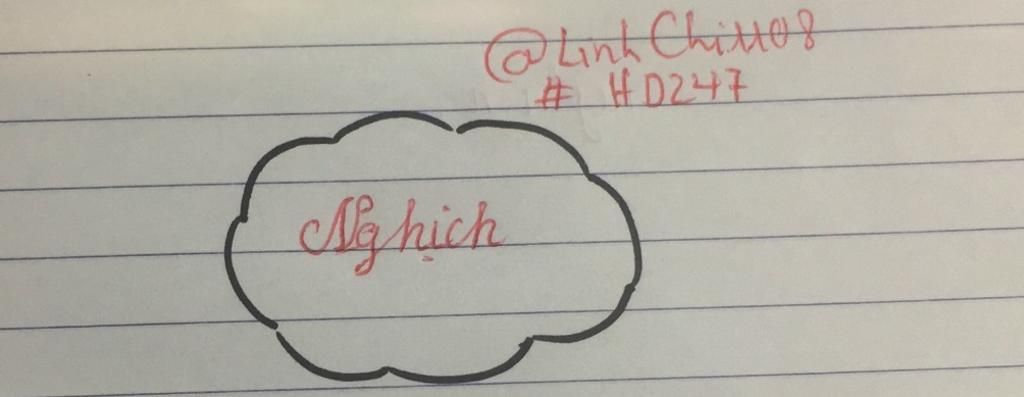 @LinhChi1108
# HD247
Nghịch